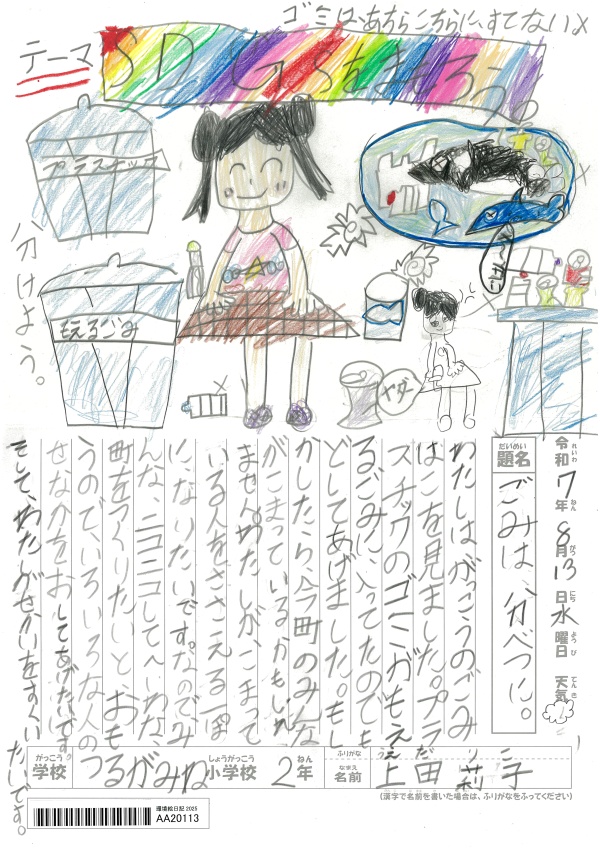 ゴミは、あちらこちらに、すてない
テーマ
SDGsをまもろう。
プラスチック
分けよう。
もえるごみ
ヤダー
令和7年8月13日水曜日 天気
れいわ ねん がつ にち ようび てんき
だいめい
題名
ごみは、分べつに。
わたしはがっこうのごみ
ばこを見ました。プラ
スチックのゴミがもえ
るごみに、入ってたのでも
どしてあげました。もし
かしたら、今町のみんな
がこまっているかもしれ
ません。わたしが、こまって
いる人をささえる一ぽ
に、なりたいです。なので、み
んな、ニコニコして〜いわな、
町をつくりたいと、おも
うので、いろいろな人の
せなかをおしてあげたいです。
そして、わたしがせかいをすくい
たいです。
がっこう
学校
つるがみね
しょうがっこう
小学校
2年
ねん
ふりがな
なまえ
名前
うえだ りこ
上田 莉子
(漢字で名前を書いた場合は、ふりがなをふってください)
環境絵日記 2025
AA20113